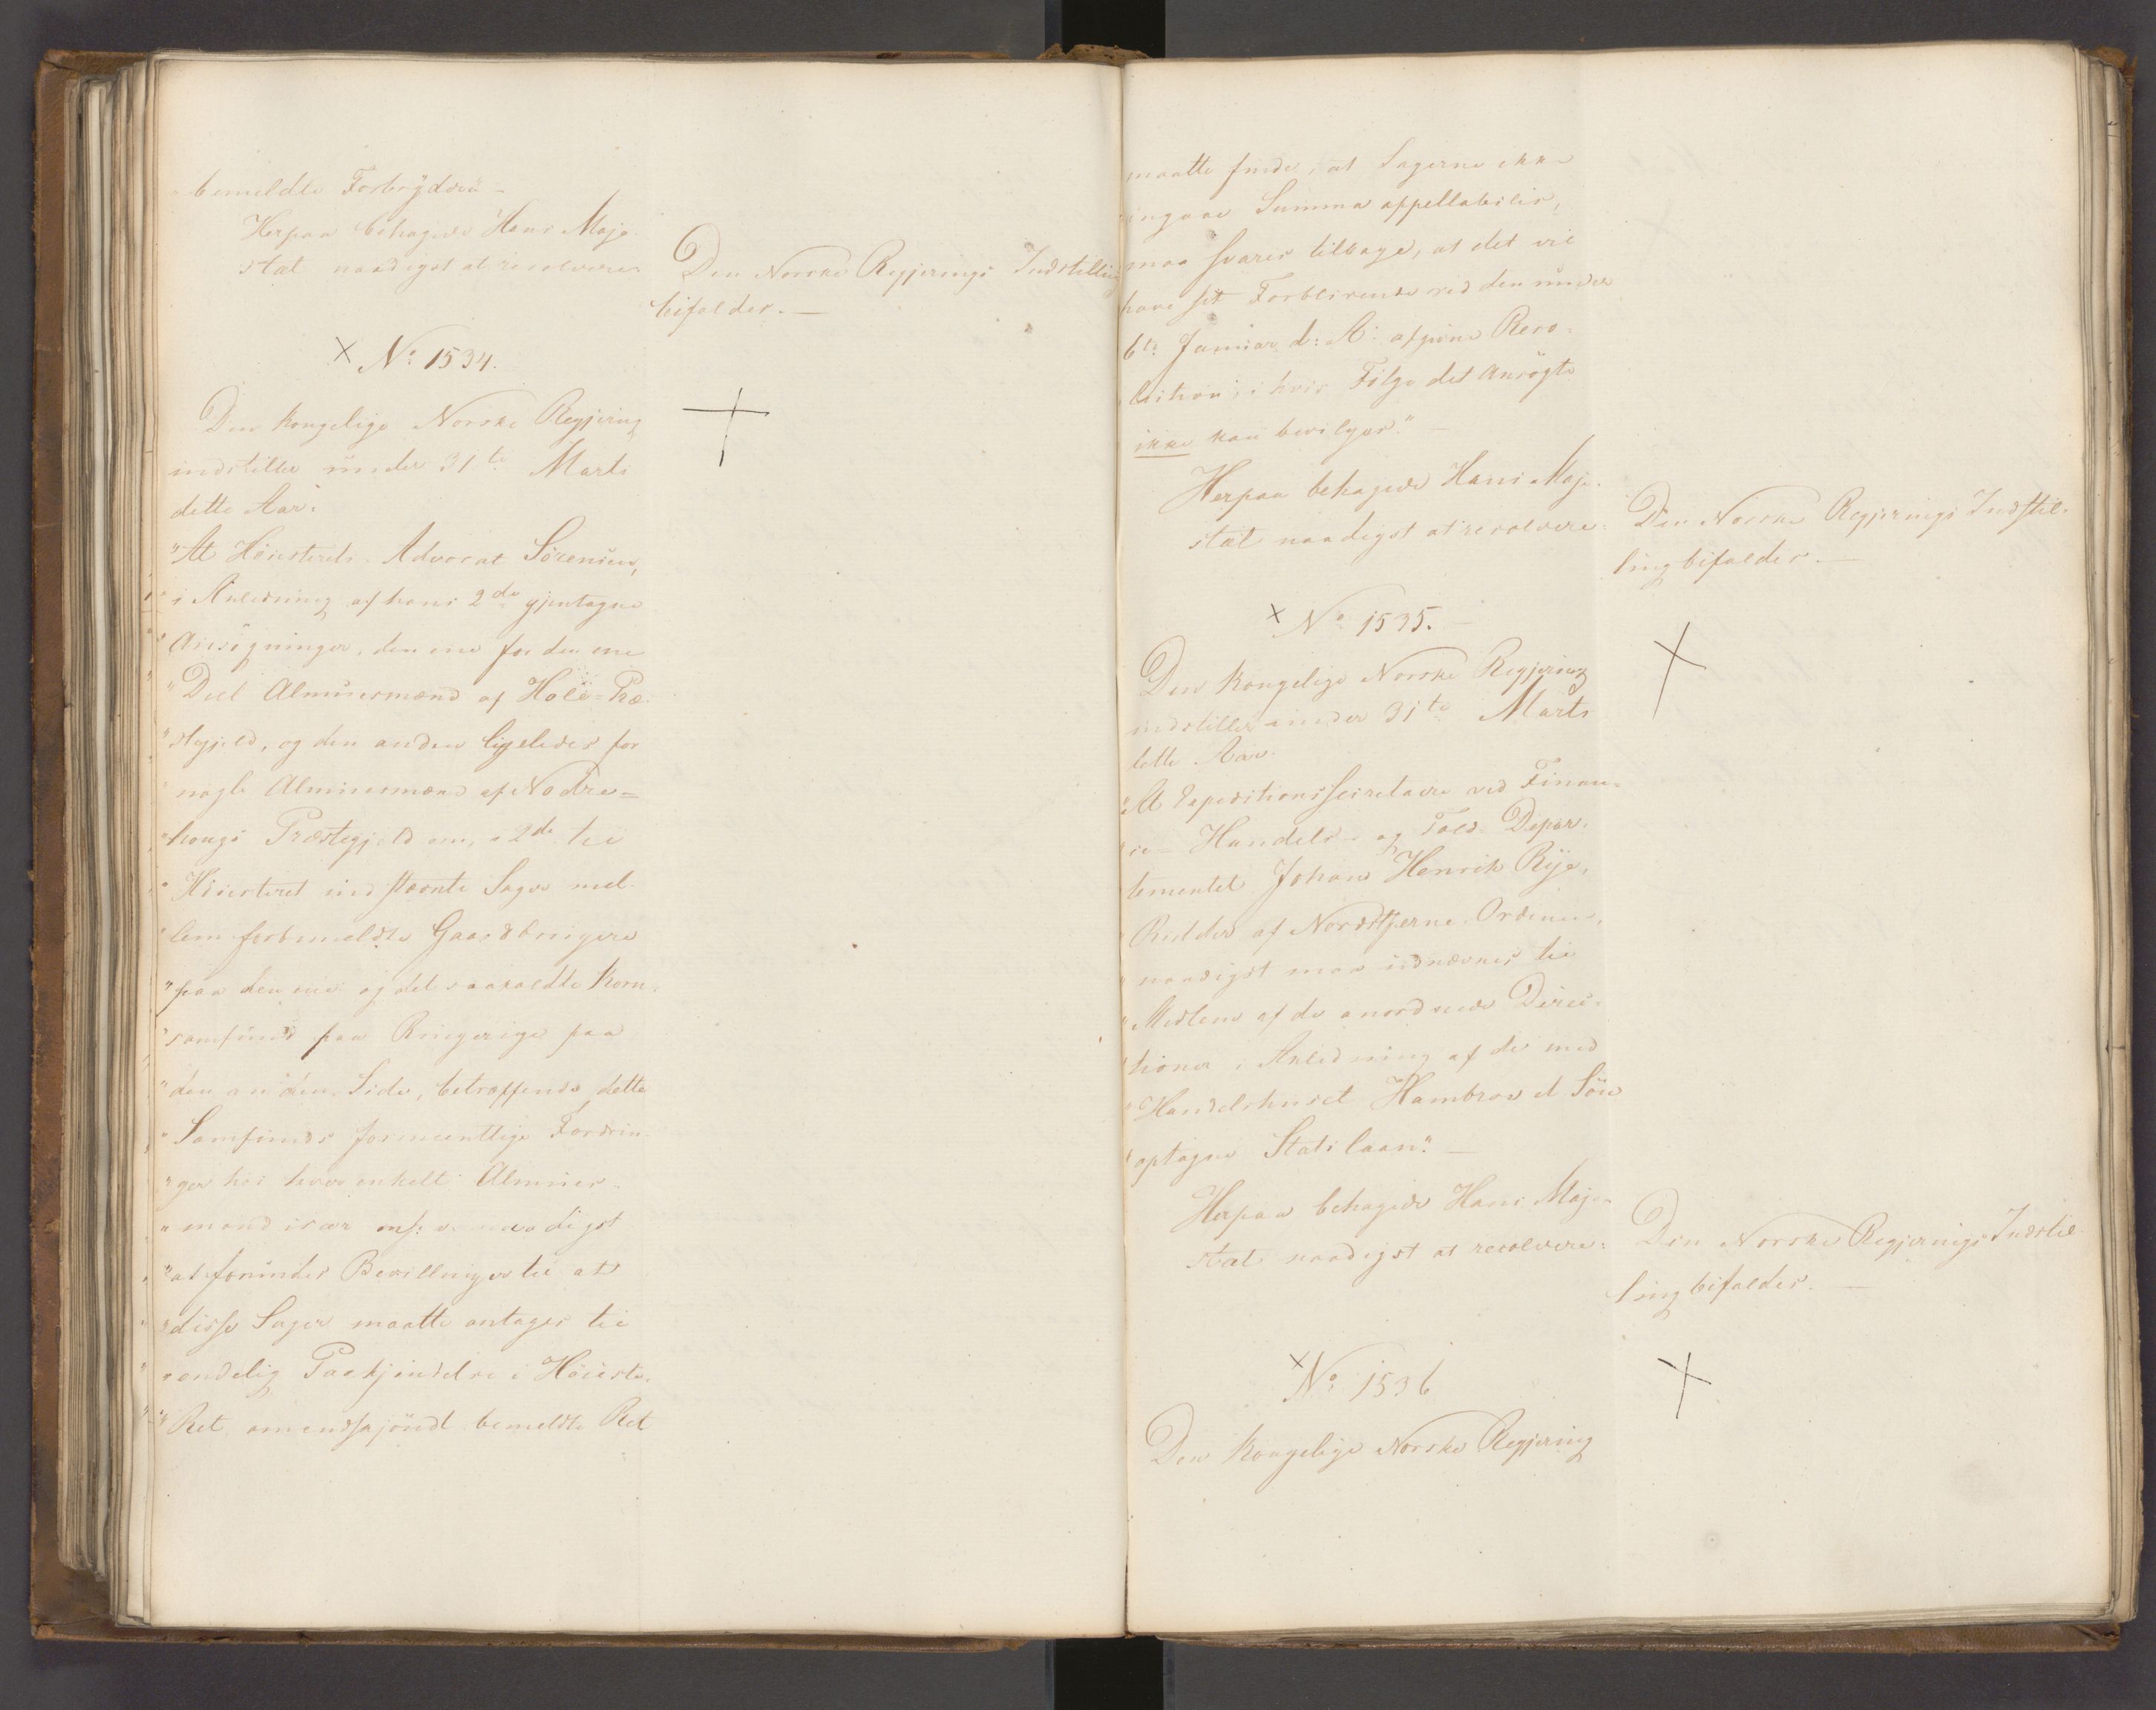 "bemeldte Forbrydere"
Herpaa behagede Hans Maje-
stæt naadigst at resolvere
Den Norske Regjerings Indstilling
bifaldes. —
× No: 1534.
Den kongelige Norske Regjering
indstiller under 31te Marts
dette Aar:
"At Höiesterets-Advocat Sörensen,
"i Anledning af hans 2de gjentagne
"Ansögninger, den ene for den ene
"Deel Almuesmænd af Hole-Præ-
"stegjeld, og den anden ligeledes for
"nogle Almuesmænd af Nodre-
"hougs Præstegjeld om, i 2de til
"Höiesteret indstævnte Sager mel-
"lem forbemeldte Gaardbrugere
"paa den ene og det saakaldte Korn-
"samfund paa Ringerige paa
"den anden Side, betræffende dette
"Samfunds formeentlige Fordrin-
"ger hos hver enkelt Almues-
"mand især naadigst
"at forundes Bevillinger til at
"disse Sager maatte antages til
"endelig Paakjendelse i Höieste-
"Ret omendskjöndt bemeldte Ret
maatte finde, at Sagerne ikke
"angaae Summa appellabilis,
maa svares tilbage, at det vil
have sit Forblivende ved den under
6te Januar d: A: afgivne Reso-
lution, i hvis Fölge det Ansögte
ikke kan bevilges." —
Herpaa behagede Hans Maje-
stæt naadigst at resolvere:
Den Norske Regjerings Indstil-
ling bifaldes. —
× No: 1535. —
Den kongelige Norske Regjering
indstiller under 31te Marts
dette Aar:
"At Expeditionssecretaire ved Finan-
"ce- Handels- og Told- Depar-
"tementet Johan Henrik Rye,
"Ridder af Nordstjerne-Ordenen,
"naadigst maa udnævnes til
"Medlem af de anordnede Direc-
"tioner i Anledning af de med
"Handelshuset Hambroe et Sön
"optagne Statslaan." —
Herpaa behagede Hans Maje-
stæt naadigst at resolvere:
Den Norske Regjerings Indstil-
ling bifaldes. —
× No: 1536
Den kongelige Norske Regjering